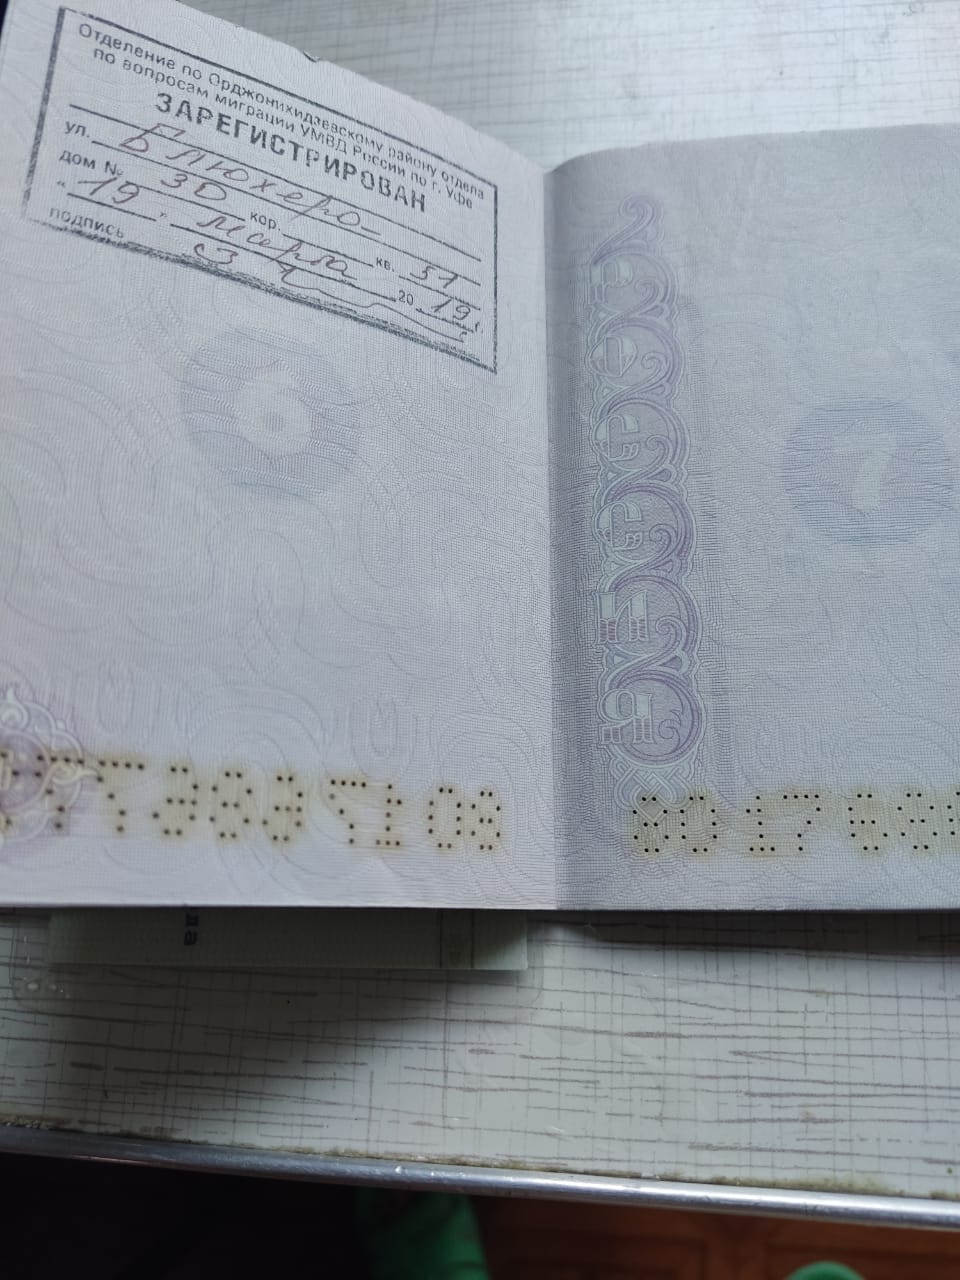 Отделение по Орджоникидзевскому району отдела
по вопросам миграции УМВД России по г. Уфе
ЗАРЕГИСТРИРОВАН
ул. Блюхера
дом № 3D кор. кв. 51
" 19 " марта 20 19
подпись
6
РОССИЯ
7
80 17 888
да